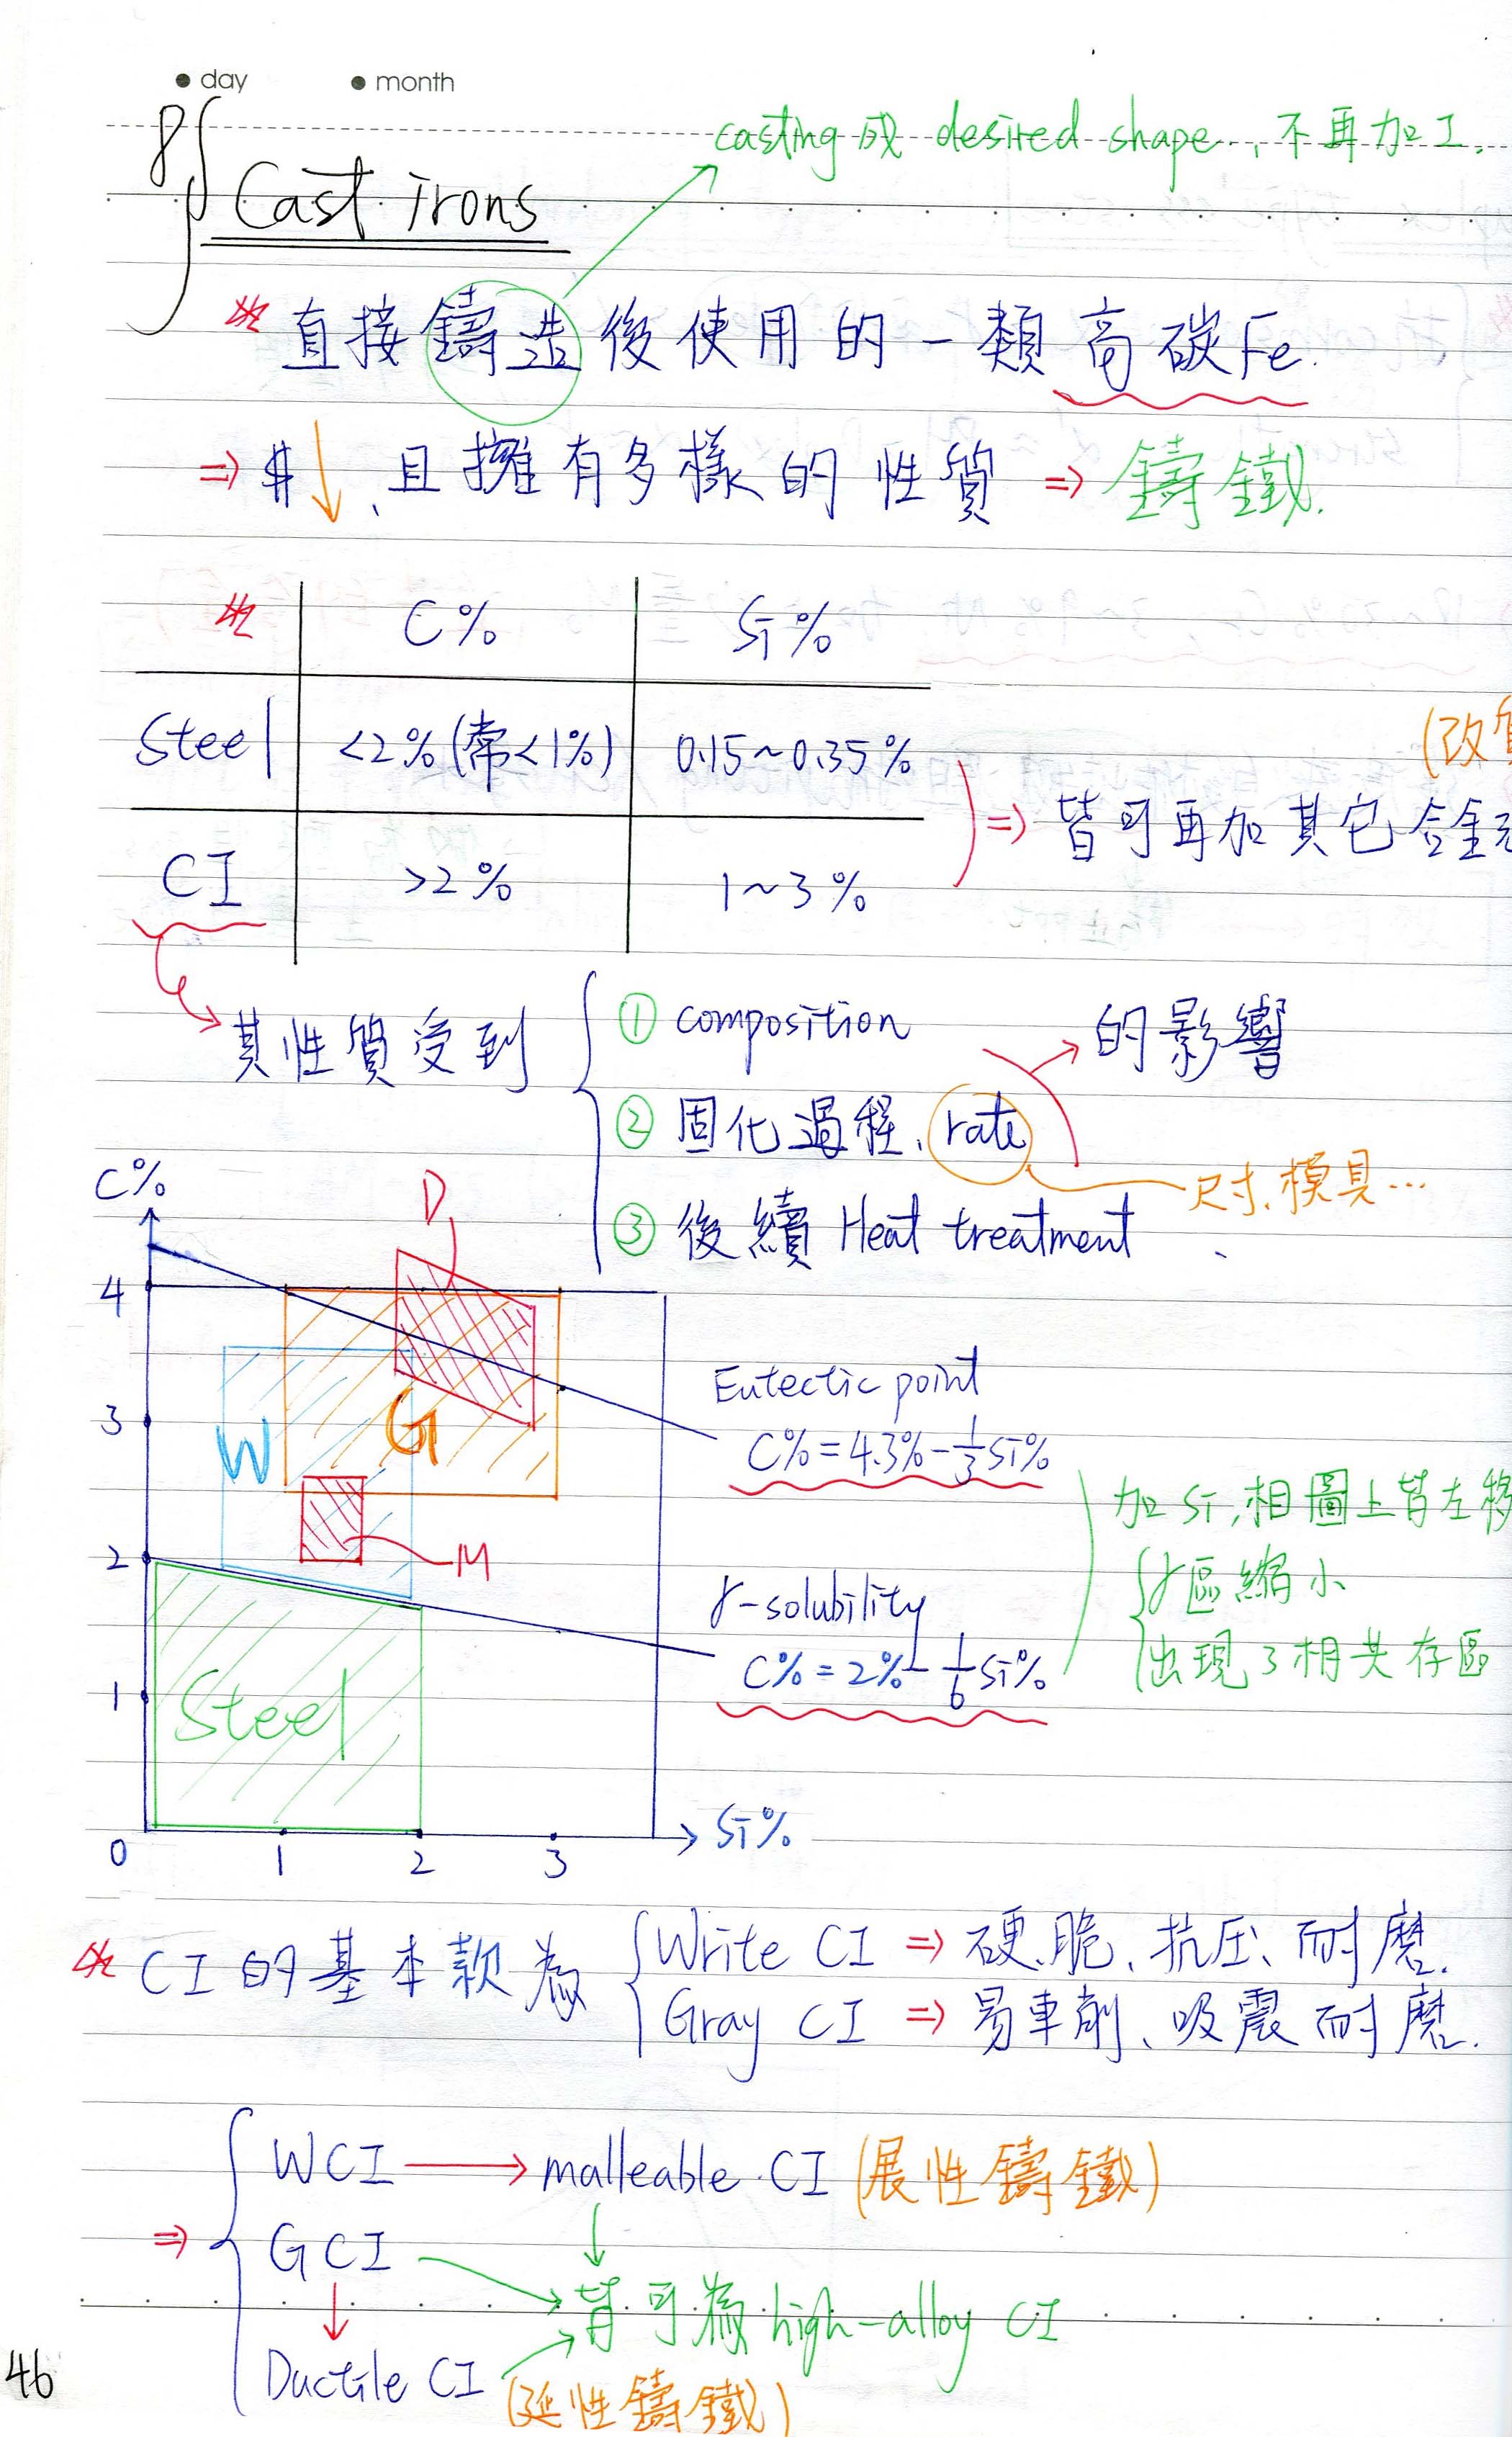 day month
casting 成 desired shape, 不再加工.
8
Cast irons
直接鑄造後使用的一類高碳Fe.
⇒ $↓、且擁有多樣的性質 ⇒ 鑄鐵.
C% Si%
Steel <2%(常<1%) 0.15~0.35%
(改質
⇒ 皆可再加其它合金元
CI >2% 1~3%
其性質受到
① composition
的影響
② 固化過程、rate
尺寸、模具…
③ 後續 Heat treatment
C%
D
4
3
2
1
0
1
2
3
Si%
W
G
M
Steel
Eutectic point
C% = 4.3% - 1/3 Si%
γ-solubility
C% = 2% - 1/6 Si%
加 Si, 相圖上皆左移
γ區縮小
出現3相共存區
CI 的基本款為
Write CI ⇒ 硬、脆、抗压、耐磨.
Gray CI ⇒ 易車削、吸震耐磨.
WCI → malleable CI (展性鑄鐵)
⇒ GCI
皆可為 high-alloy CI
Ductile CI (延性鑄鐵)
46